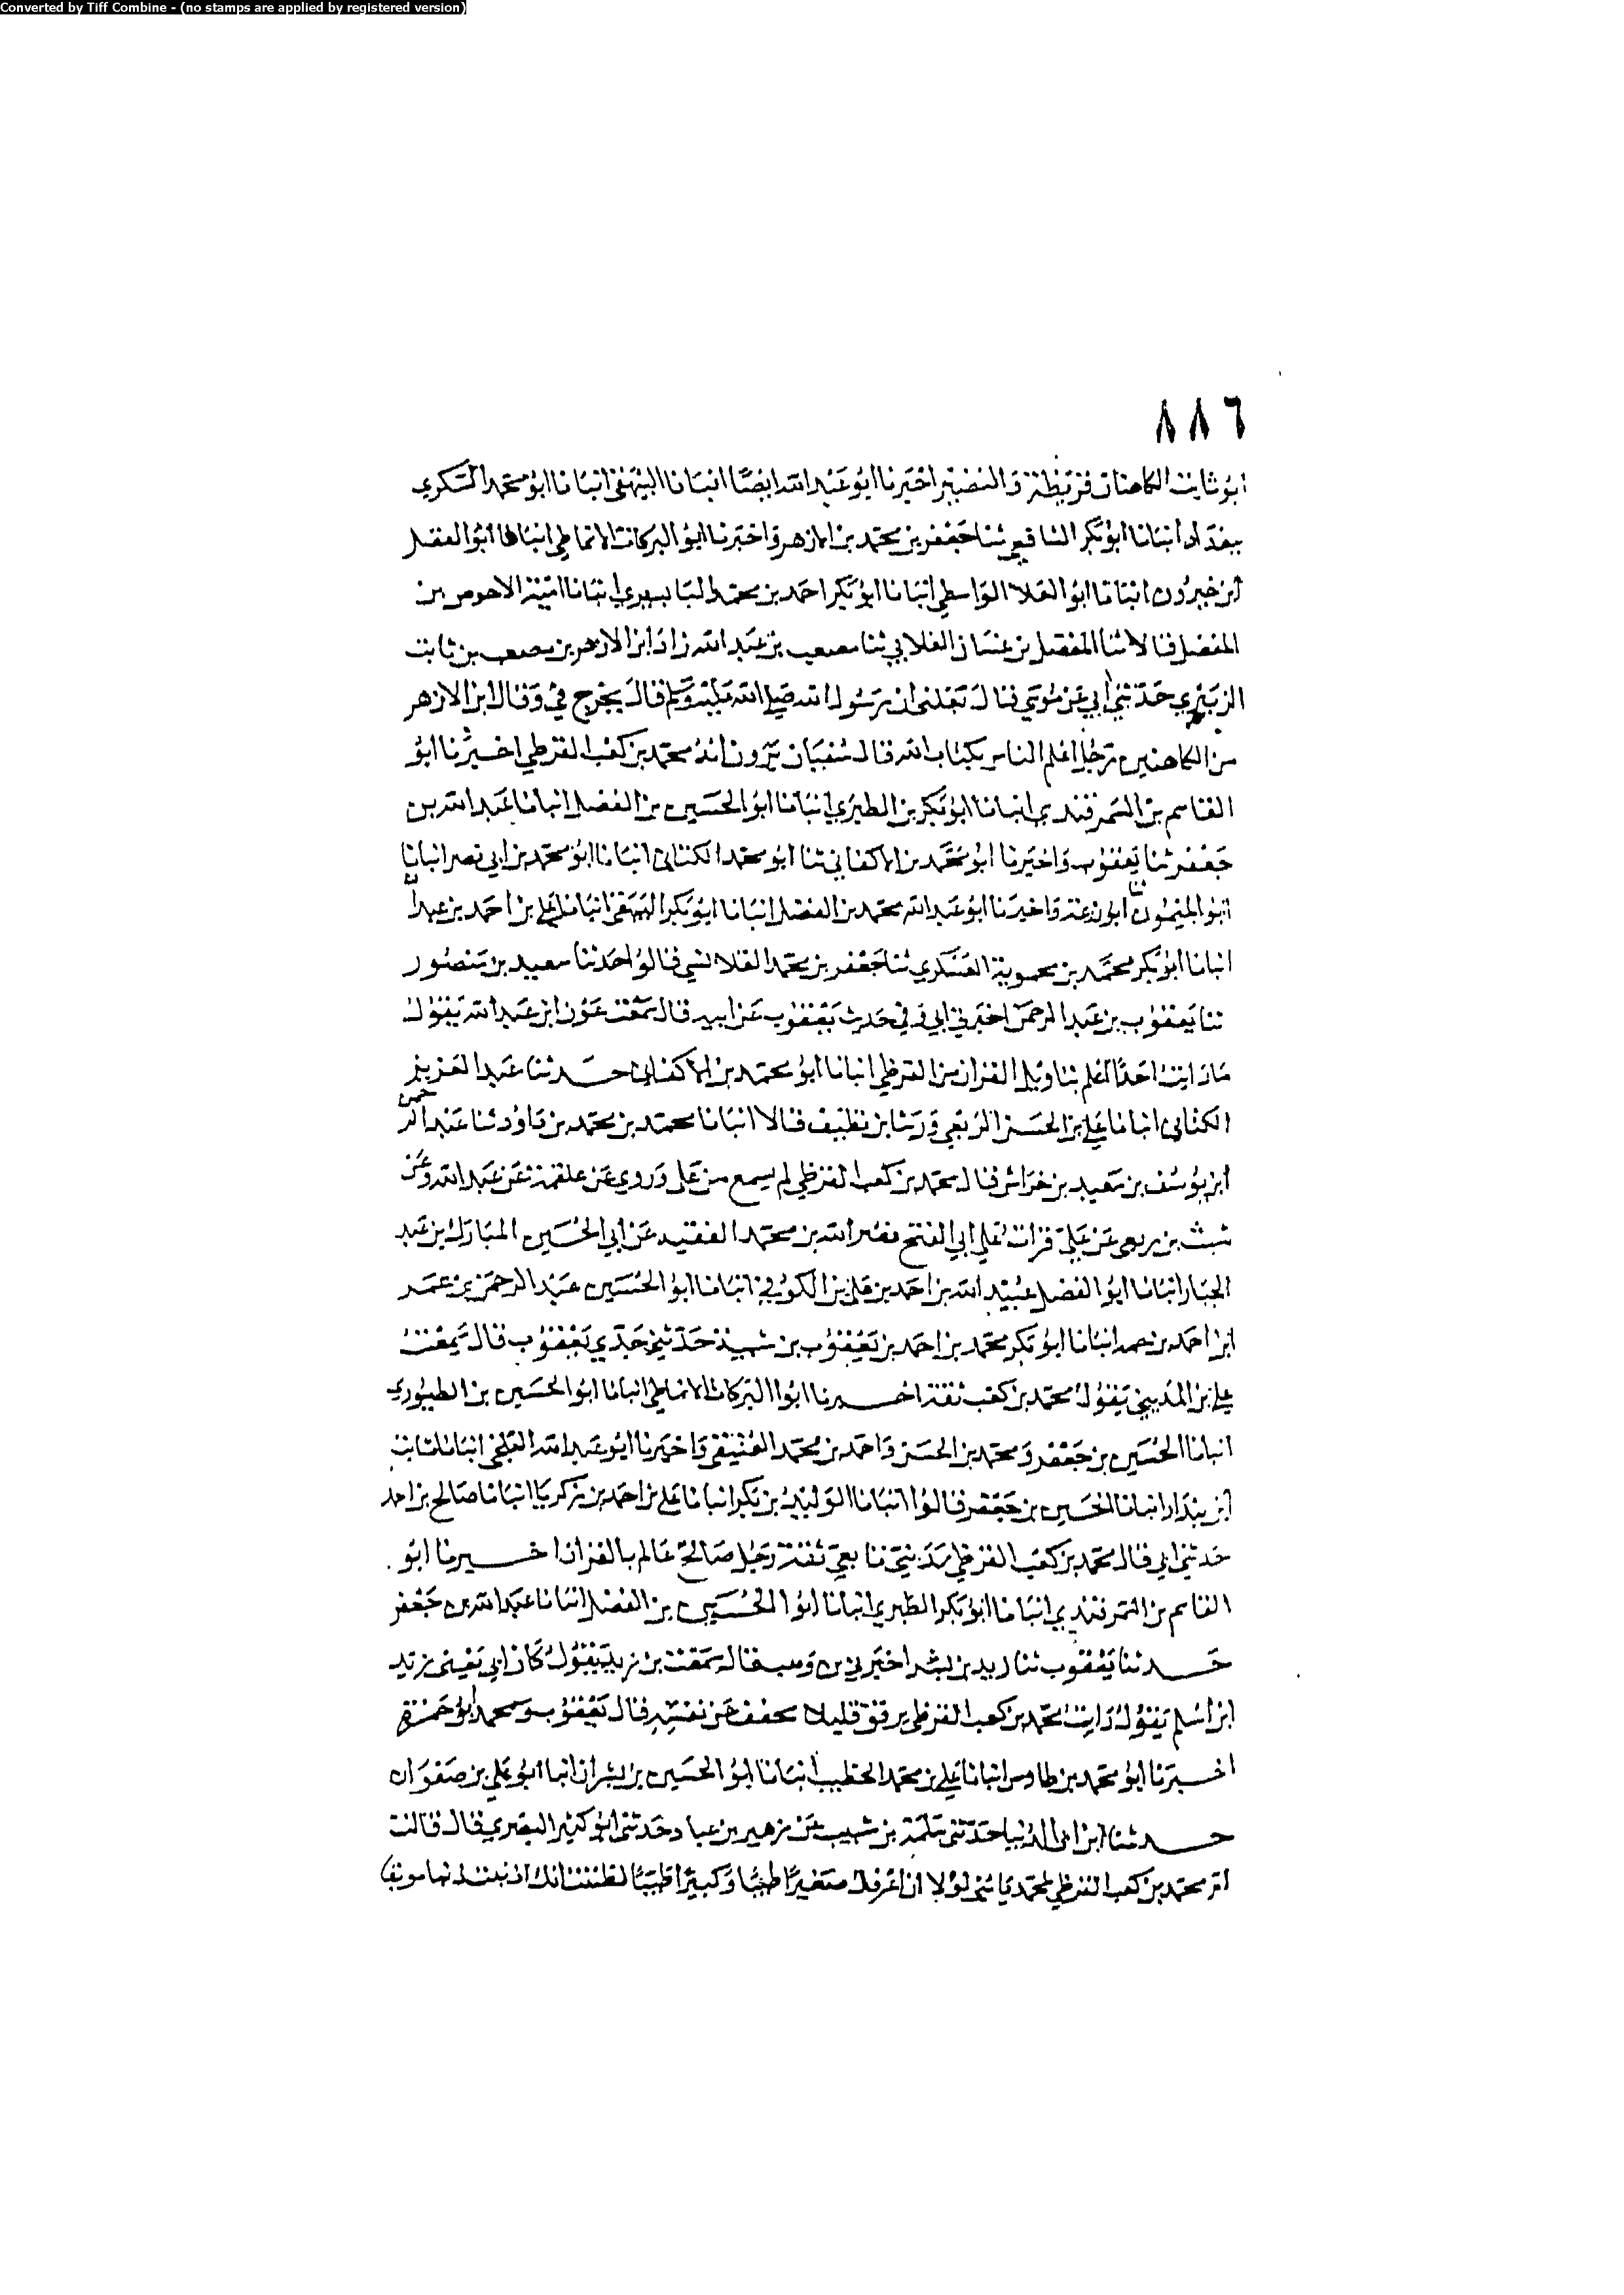 Converted by Tiff Combine - (no stamps are applied by registered version)
٨٨٦
ابو ثابت الكاهنان قريظة والنضير اخبرنا ابو عبد الله ايضا انبانا البيهقي انبانا ابو محمد السكري
ببغداد انبانا ابو بكر الشافعي ثنا جعفر بن محمد بن الازهر واخبرنا ابو البركات الانماطي انباها ابو الفضل
ابن خيرون انبانا ابو العلا الواسطي انبانا ابو بكر احمد بن محمد البابسيري انبانا الاحوص بن
المفضل قالا ثنا المفضل بن غسان الغلابي ثنا مصعب بن عبد الله زاد ابن الازهر بن مصعب بن ثابت
الزبيري حدثني ابي عن موسى قال بلغني ان رسول الله صلى الله عليه وسلم قال يخرج في وقال ابن الازهر
من الكاهنين رجل اعلم الناس بكتاب الله قال سفيان يرون انه محمد بن كعب القرظي اخبرنا ابو
القاسم بن السمرقندي انبانا ابو بكر بن الطبري انبانا ابو الحسين بن الفضل انبانا عبد الله بن
جعفر ثنا يعقوب واخبرنا ابو محمد بن الاكفاني ثنا ابو محمد الكتاني انبانا ابو محمد بن ابي نصر انبانا
ابو الميمون ثنا ابو زرعة واخبرنا ابو عبد الله محمد بن الفضل انبانا ابو بكر البيهقي انبانا علي بن احمد بن عبدان
انبانا ابو بكر محمد بن محموية العسكري ثنا جعفر بن محمد القلانسي قالوا حدثنا سعيد بن منصور
ثنا يعقوب بن عبد الرحمن اخبرني ابي وفي حديث يعقوب عن ابيه قال سمعت عون ابن عبد الله يقول
ما رايت احدا اعلم بتاويل القران من القرظي انبانا ابو محمد بن الاكفاني حدثنا عبد العزيز
الكتاني انبانا علي بن الحسن الربعي ورشا بن نظيف قالا انبانا محمد بن محمد بن داود ثنا عبد الرحمن
ابن يوسف بن سعيد بن خراش قال محمد بن كعب القرظي لم يسمع من علي وروي عن علقمة عن عبد الله وعن
شبث بن ربعي عن علي قرات على ابي الفتح نصر الله بن محمد الفقيه عن ابي الحسين المبارك بن عبد
الجبار انبانا ابو الفضل عبيد الله بن احمد بن علي بن الكوفي انبانا ابو الحسين عبد الرحمن بن عمر
ابن احمد بن حمة انبانا ابو بكر محمد بن احمد بن يعقوب بن شيبة حدثني جدي يعقوب قال سمعت
علي بن المديني يقول محمد بن كعب ثقة اخبرنا ابو البركات الانماطي انبانا ابو الحسين بن الطيوري
انبانا الحسين بن جعفر ومحمد بن الحسن واحمد بن محمد العتيقي واخبرنا ابو عبد الله البلخي انبانا ثابت
ابن بندار انبانا الحسين بن جعفر قالوا انبانا الوليد بن بكر انبانا علي بن احمد بن زكريا انبانا صالح بن احمد
حدثني ابي قال محمد بن كعب القرظي مديني تابعي ثقة رجل صالح عالم بالقران اخبرنا ابو
القاسم بن السمرقندي انبانا ابو بكر الطبري انبانا ابو الحسين بن الفضل انبانا عبد الله بن جعفر
حدثنا يعقوب ثنا زيد بن بشر اخبرني بن وهب قال سمعت بن زيد يقول كان ابي يعني زيد
ابن اسلم يقول رايت محمد بن كعب القرظي يرفق قليلا عن نفسه قال يعقوب ومحمد ابو حمزة
اخبرنا ابو محمد بن طاوس انبانا علي بن محمد الخطيب انبانا ابو الحسين بن بشران انبا ابو علي بن صفوان
حدثنا ابن ابي الدنيا حدثني سلمة بن شبيب عن زهير بن عباد حدثني ابو كثير البصري قال قالت
ام محمد بن كعب القرظي لمحمد يا بني لولا اني اعرفك صغيرا طيبا وكبيرا طيبا لظننت انك اذنبت ذنبا موبقا